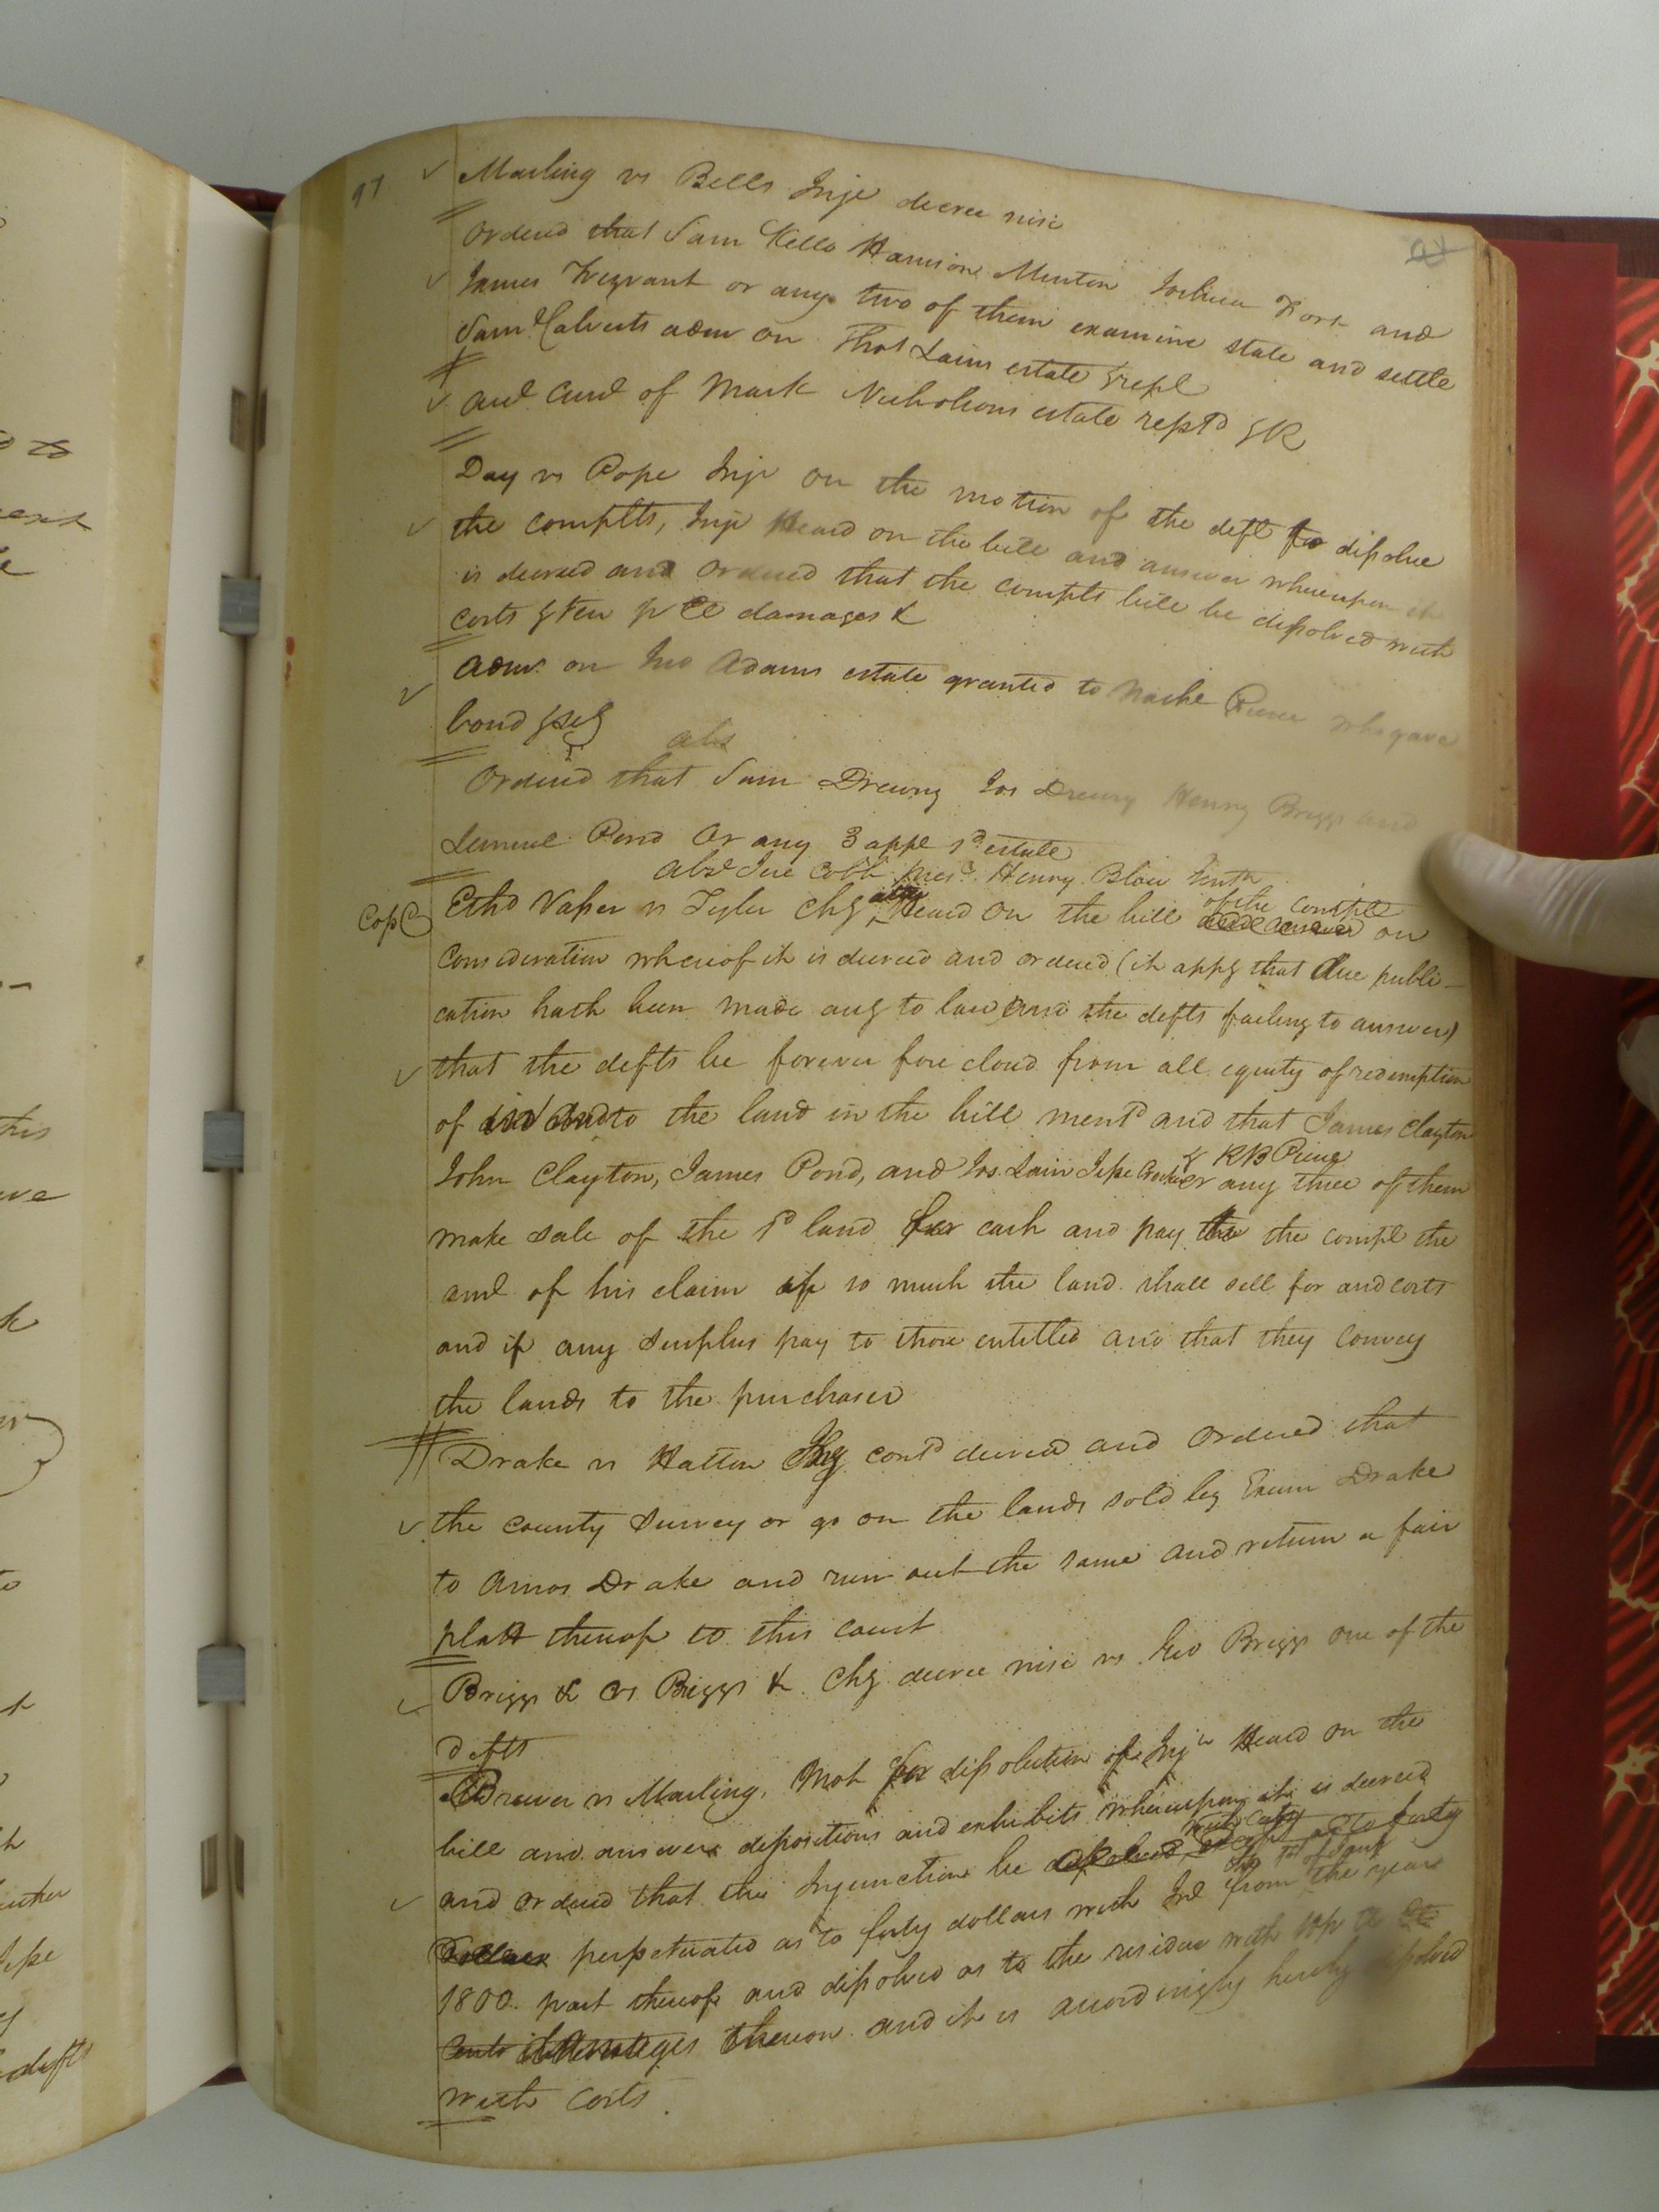 97
Marling vs Bells Inje decree nisi
Ordered that Sam Kello Harrison Minton Joshua Fort and
James Trezvant or any two of them examine state and settle
Sam Calverts adm on Thos Lains estate & repl
aud Cur of Mark Nicholsons estate rept'd & R
Day vs Pope Inje on the motion of the deft to dissolve
the complts, Inje Heard on the bill and answer whereupon it
is decreed and Ordered that the complts bill be dissolved with
costs & ten p Ct damages &
adm on Jno Adams estate granted to who gave
bond & sec
abs
Ordered that Sam Drewry Jos Drewry Henry Briggs and
Lemuel Pond Or any 3 appe sd estate
abst Jere Cobb pres. Henry Blow
Cop C
Ethd Vaser vs Tyler Chy Heard On the bill of the complt and answer on
Consideration whereof it is decreed and ordered (it appg that due publi-
cation hath been made aug to law and the defts failing to answer)
that the defts be forever fore closd from all equity of redemption
of in and to the land in the bill ment'd and that James Clayton
John Clayton, James Pond, and Jos. Lain & R B Prince or any three of them
make sale of the sd land for cash and pay the the compl the
amt of his claim if so much the land shall sell for and costs
and if any Surplus pay to those entitled and that they convey
the lands to the purchaser
Drake vs Hatton Chy cont'd decreed and ordered that
the county Survey or go on the lands sold by Exum Drake
to Amos Drake and run out the same and return a fair
platt thereof to this court
Briggs & vs Briggs & Chy decree nisi vs Geo Briggs one of the
defts
Brewer vs Marling. Mot for dissolution of Injn Heard on the
bill and answer depositions and exhibits whereupon it is decreed
and ordered that the Injunction be dissolved, with costs Except as to forty
Dollars perpetuated as to forty dollars with Int from the 1st of Jany the year
1800. part thereof and dissolved as to the residue with 10 p Ct
Cents damages thereon and it is accordingly hereby dissolved
with costs.